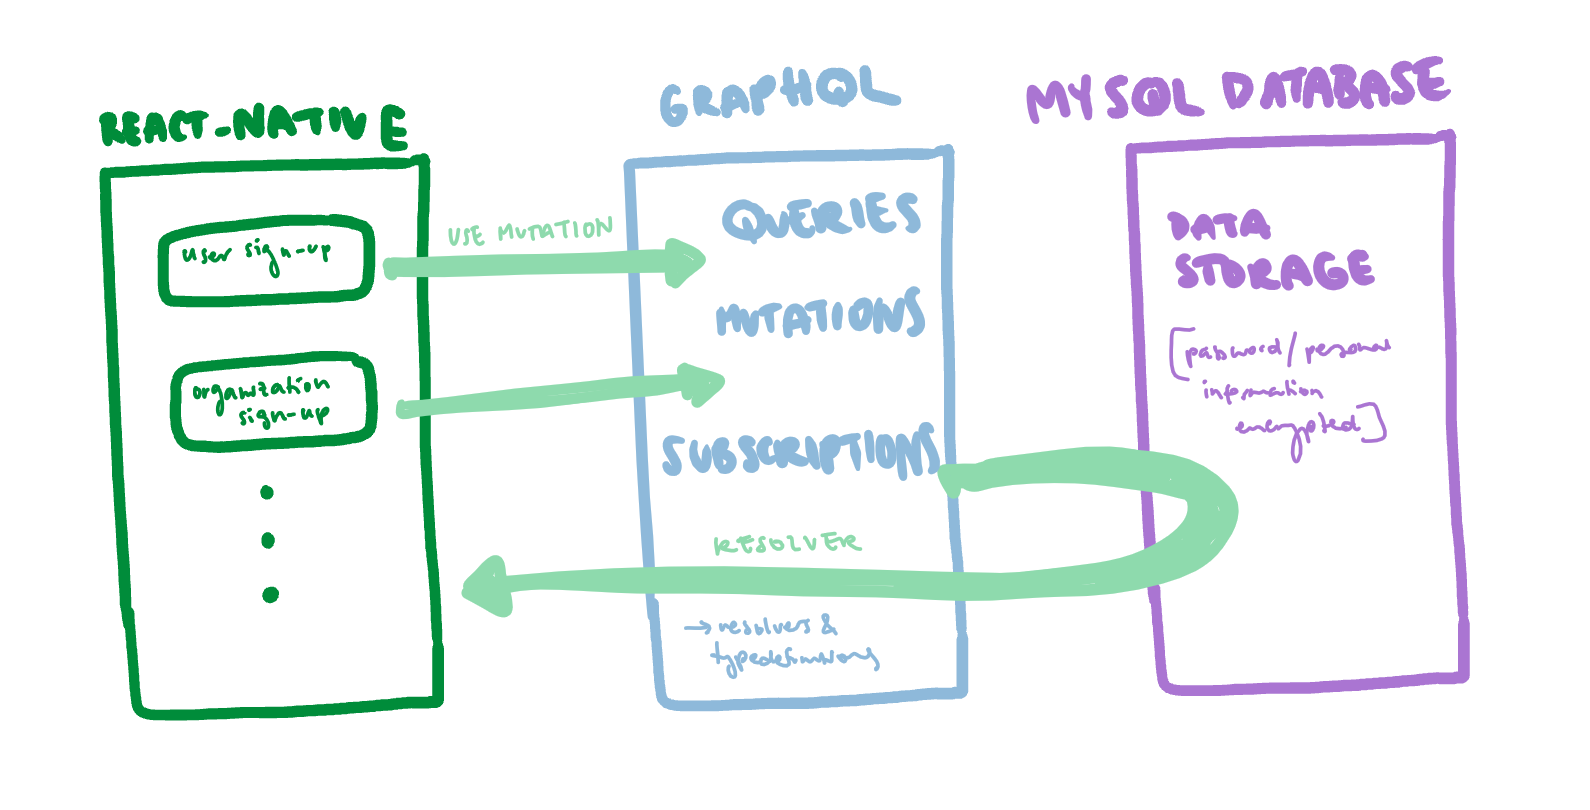 REACT-NATIVE
user sign-up
organization
sign-up
USE MUTATION
GRAPHQL
QUERIES
MUTATIONS
SUBSCRIPTIONS
RESOLVER
→ resolvers &
typedefinitions
MYSQL DATABASE
DATA
STORAGE
[password/personal
information
encrypted]